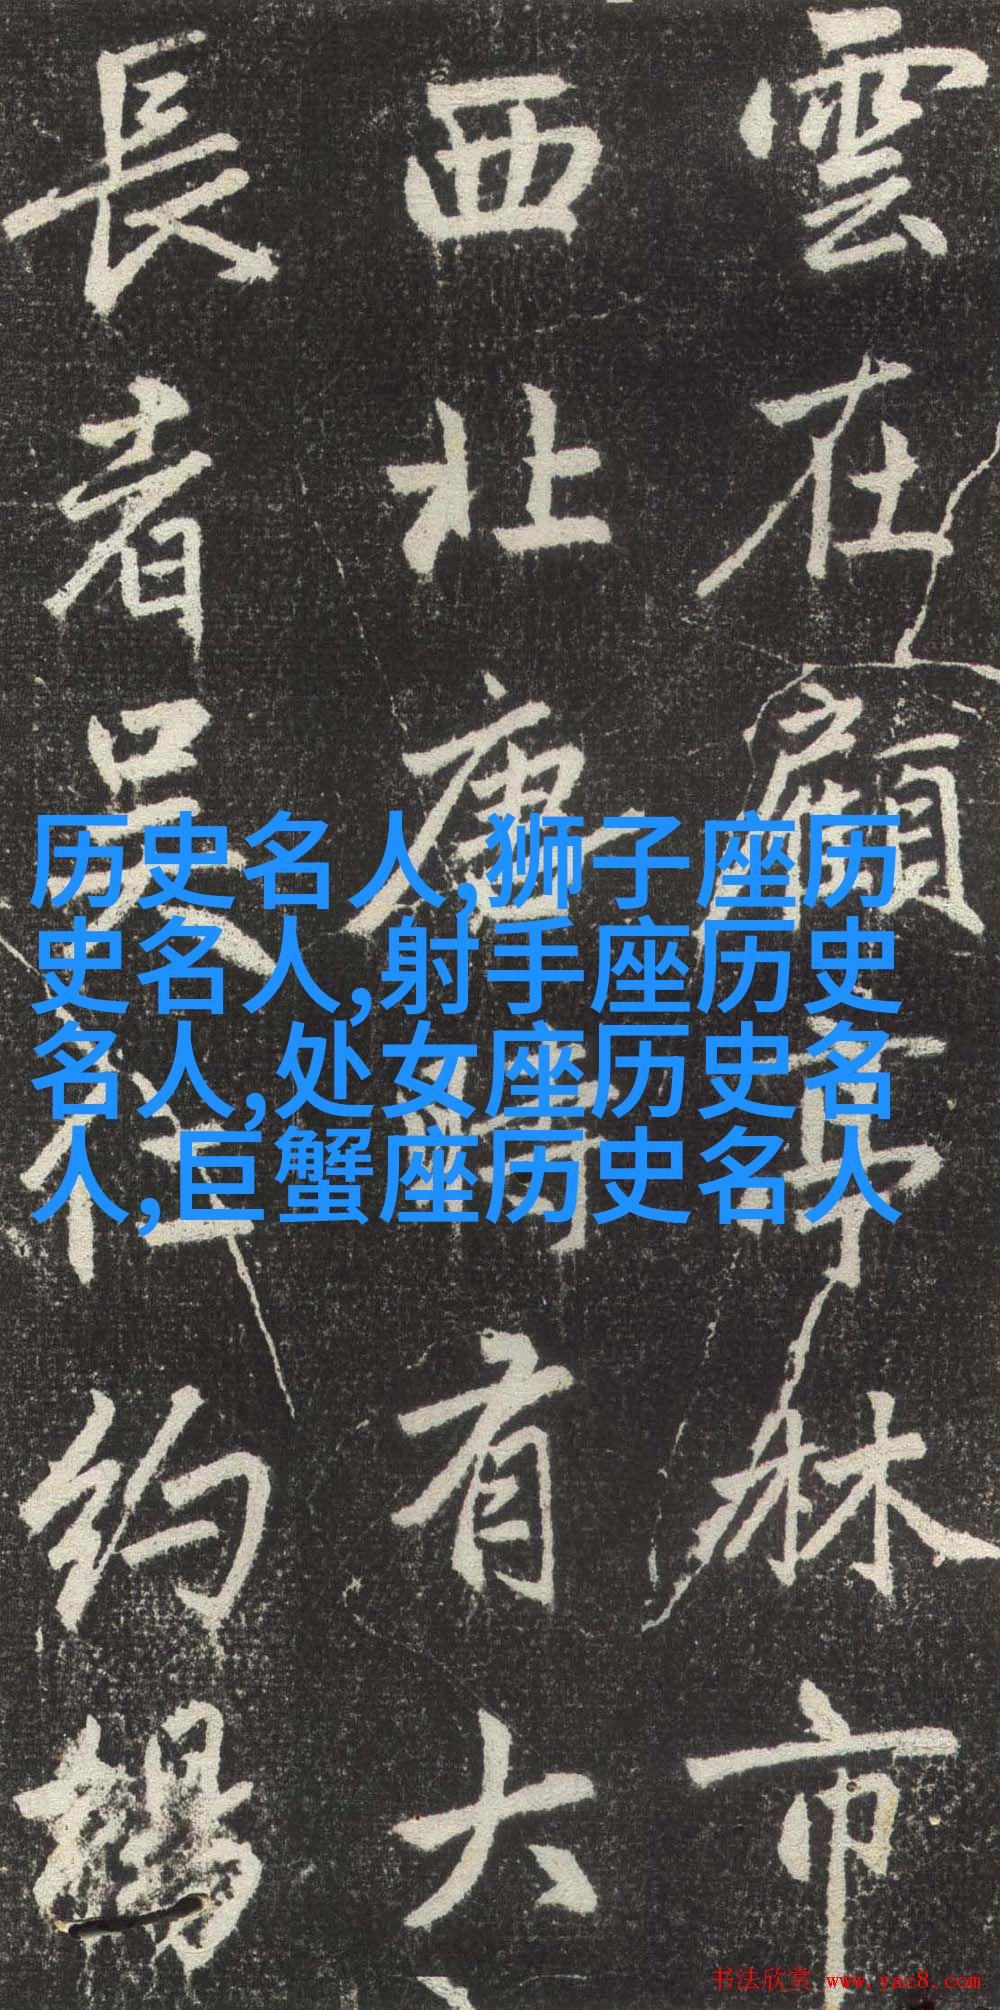 雲在顧亭林市
西北唐時有大
長者吳約
历史名人,狮子座历
史名人,射手座历史
名人,处女座历史名
人,巨蟹座历史名人
书法欣赏 www.yac8.com